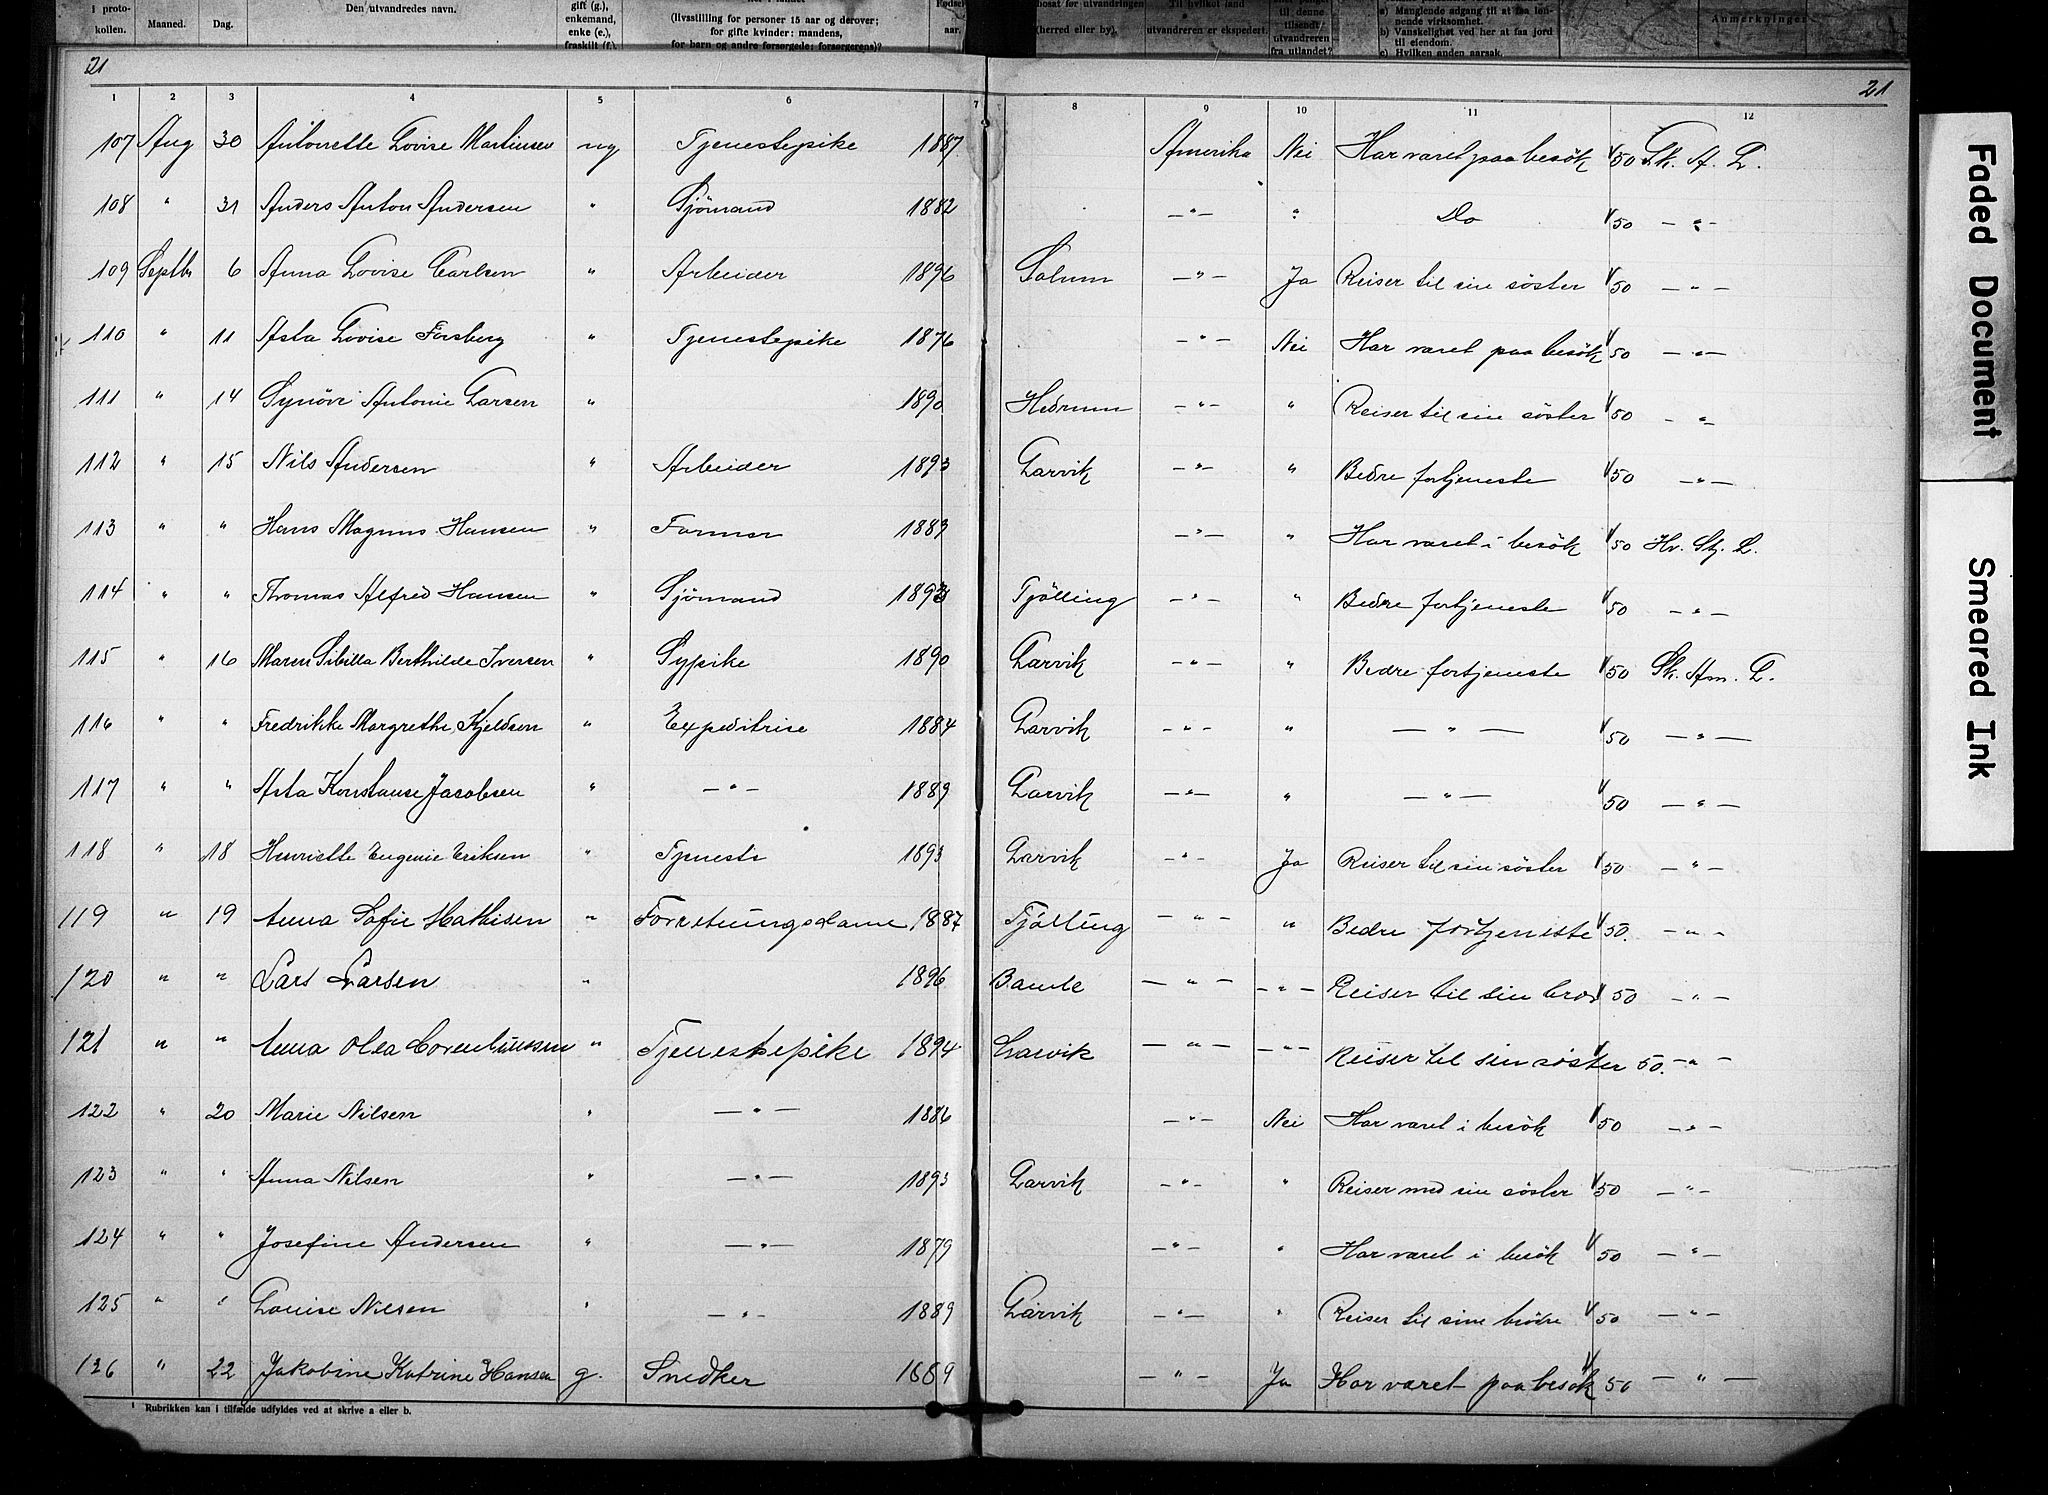 i proto-
kollen. Maaned. Dag. Den utvandredes navn. gift (g.), enkemand, enke (e.), fraskilt (f.) (livsstilling for personer 15 aar og derover; for gifte kvinder: mandens, for barn og andre forsørgede: forsørgerens)? aar. bosat før utvandringen (herred eller by). Til hvilket land utvandreren er ekspedert. til denne tilsendt utvandreren fra utlandet? a) Manglende adgang til at faa løn-
nende virksomhet.
b) Vanskelighet ved her at faa jord
til eiendom.
c) Hvilken anden aarsak. Anmerkninger.
21 21
1 2 3 4 5 6 7 8 9 10 11 12
107 Aug 30 Antonette Lovise Martinsen ug Tjenestepike 1887 Amerika Nei Har varet paa besök 1/50 Sk. A. L.
108 " 31 Anders Anton Andersen " Sjömand 1882 —"— " Do 1/50 —"—
109 Septbr 6 Anna Lovise Carlsen " Arbeider 1896 Solum —"— Ja Reiser til sin söster 1/50 —"—
110 " 11 Asta Lovise Forsberg " Tjenestepike 1876 —"— Nei Har varet paa besök 1/50 —"—
111 " 14 Synöve Antonie Larsen " 1890 Hedrum —"— " Reiser til sin söster 1/50 —"—
112 " 15 Nils Andersen " Arbeider 1893 Larvik —"— " Bedre fortjeneste 1/50 —"—
113 " " Hans Magnus Hansen " Farmer 1883 —"— " Har varet i besök 1/50 Hv. Stj. L.
114 " " Thomas Alfred Hansen " Sjömand 1893 Tjölling —"— " Bedre fortjeneste 1/50 —"—
115 " 16 Maren Sibilla Berthilde Iversen " Sypike 1890 Larvik —"— " Bedre fortjeneste 1/50 Sk. Am. L.
116 " " Fredrikke Margrethe Kjeldsen " Expeditrise 1884 Larvik —"— " —"— 1/50 —"—
117 " " Asta Konstanse Jacobsen " —"— 1889 Larvik —"— " —"— 1/50 —"—
118 " 18 Henriette Eugenie Eriksen " Tjeneste 1893 Larvik —"— Ja Reiser til sin söster 1/50 —"—
119 " 19 Anna Sofie Mathisen " Forretningsdame 1887 Tjölling —"— " Bedre fortjeneste 1/50. —"—
120 " " Lars Larsen " 1896 Bamle —"— —"— Reiser til sin bror 1/50 —"—
121 " " Anna Olea Corentiussen " Tjenestepike 1894 Larvik —"— —"— Reiser til sin söster 1/50. —"—
122 " 20 Marie Nilsen " —"— 1886 —"— Nei Har varet i besök 1/50 —"—
123 " " Anna Nilsen " —"— 1893 Larvik —"— " Reiser med sin söster 1/50 —"—
124 " " Josefine Andersen " —"— 1879 —"— " Har varet i besök 1/50 —"—
125 " " Louise Nilsen " —"— 1889 Larvik —"— " Reiser til sine brödre 1/50 —"—
126 " 22 Jakobine Katrine Hansen g. Snedker 1889 —"— Ja Har været paa besøk 1/50 —"—
¹ Rubrikken kan i tilfælde udfyldes ved at skrive a eller b.
Faded Document
Smeared Ink